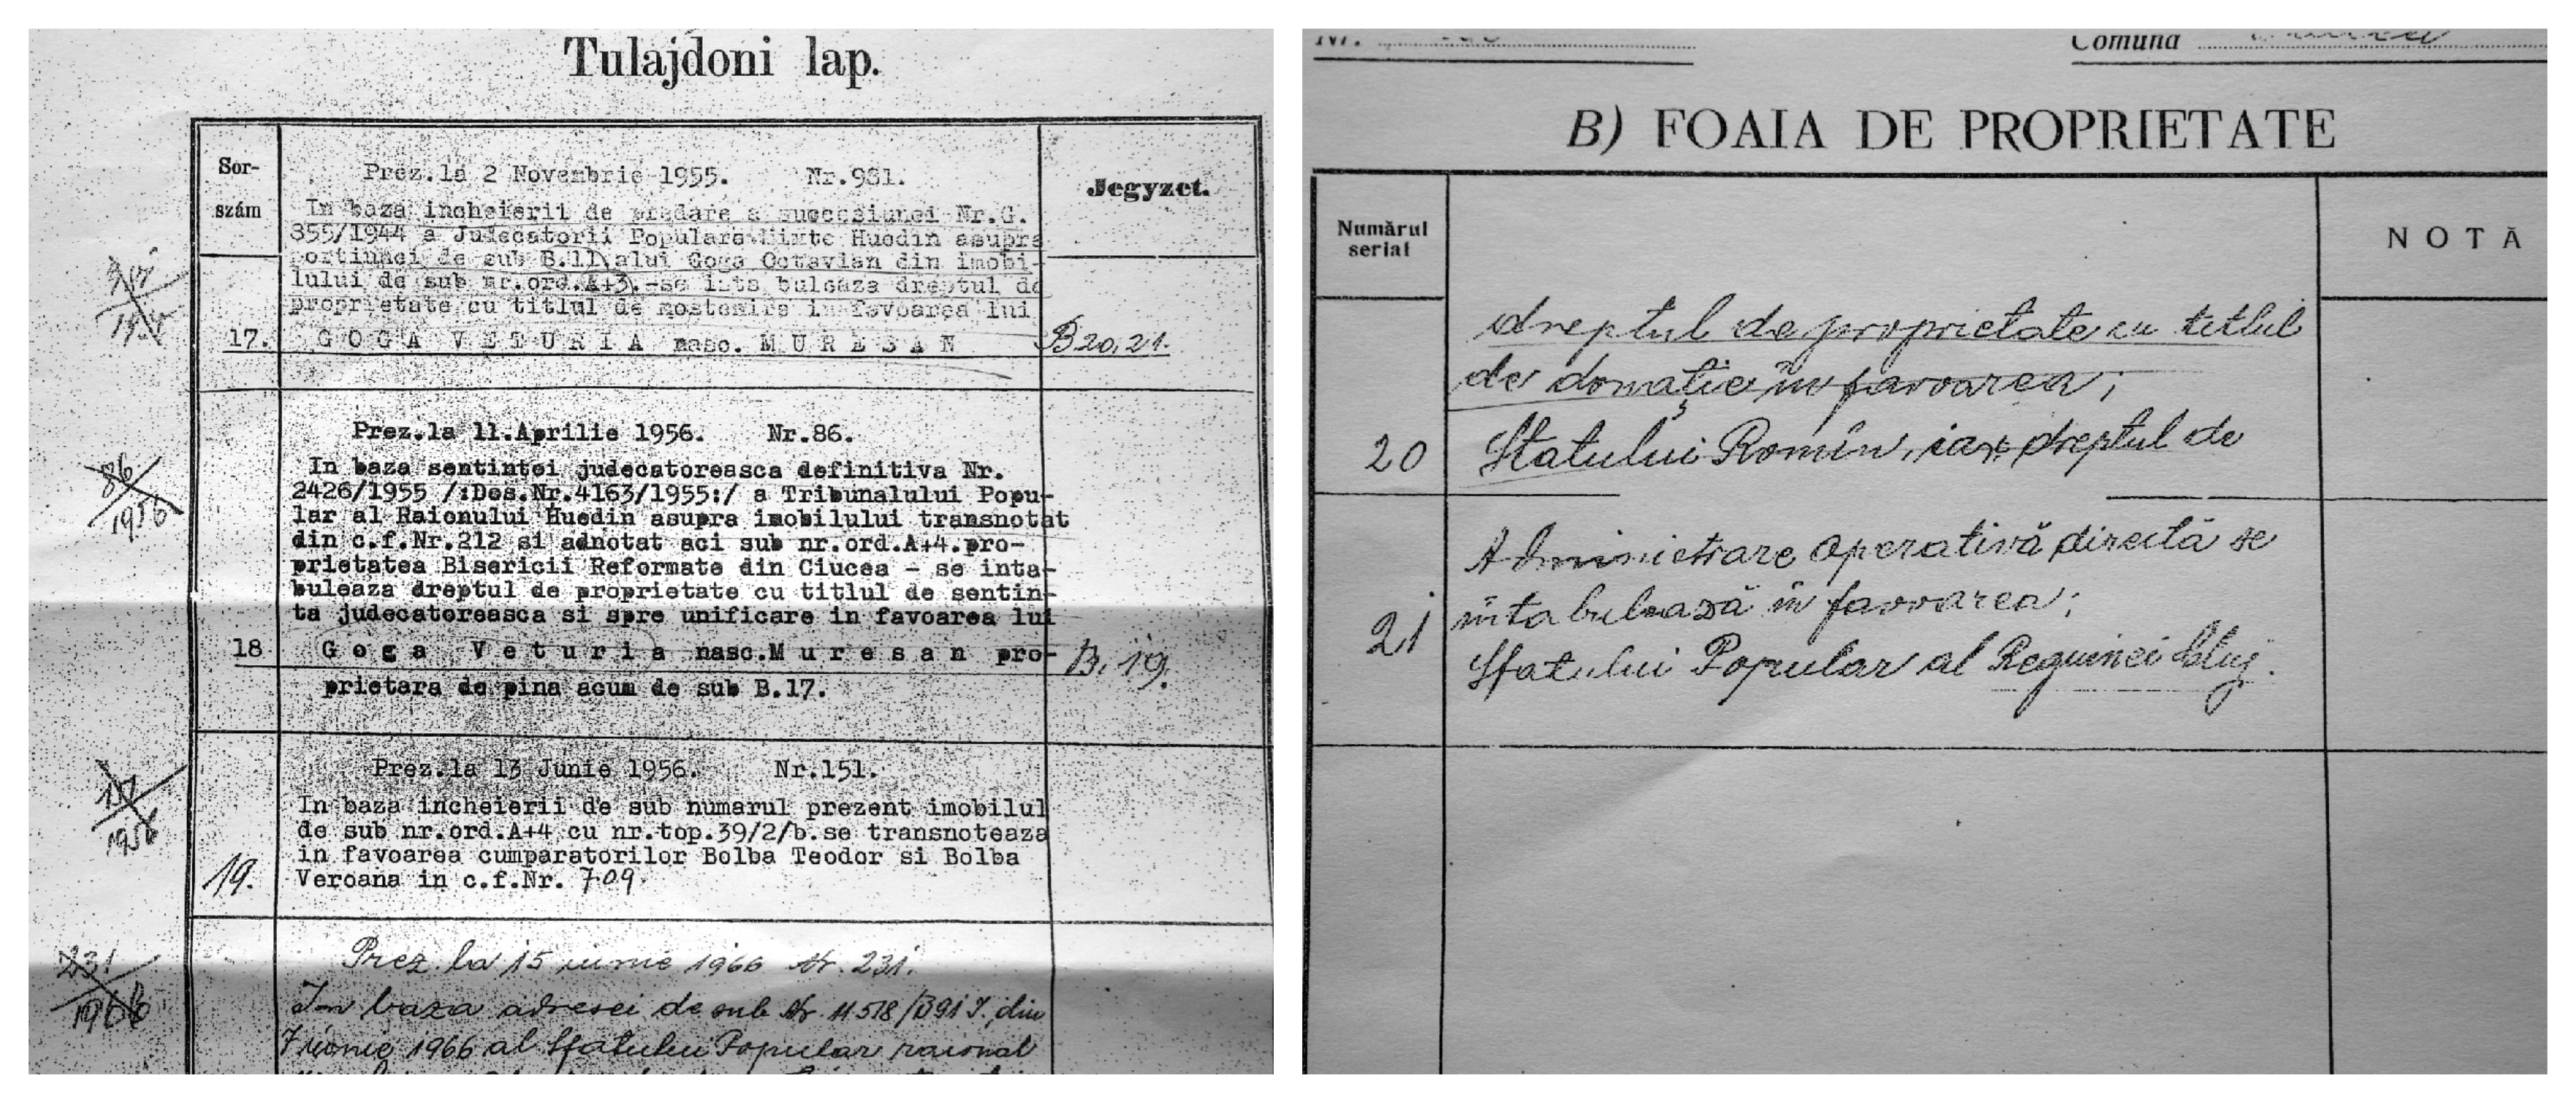 Tulajdoni lap.
Sor-
szám
Jegyzet.
Prez.la 2 Novembrie 1955. Nr.981.
In baza incheierii de predare a succesiunei Nr.G.
355/1944 a Judecatorii Populare Mixte Huedin asupra
portiunei de sub B.11 alui Goga Octavian din imobi-
lului de sub nr.ord.A+3.-se inta buleaza dreptul de
proprietate cu titlul de mostenire in favoarea lui
17. G O G A V E T U R I A nasc. M U R E S A N B 20,21.
Prez.la 11.Aprilie 1956. Nr.86.
86/
1956
In baza sentintei judecatoreasca definitiva Nr.
2426/1955 /:Dos.Nr.4163/1955:/ a Tribunalului Popu-
lar al Raionului Huedin asupra imobilului transnotat
din c.f.Nr.212 si adnotat aci sub nr.ord.A+4.pro-
prietatea Bisericii Reformate din Ciucea - se inta-
buleaza dreptul de proprietate cu titlul de sentin-
ta judecatoreasca si spre unificare in favoarea lui
18 G o g a V e t u r i a nasc.M u r e s a n pro- B. 19.
prietara de pina acum de sub B.17.
Prez.la 13 Junie 1956. Nr.151.
1956
In baza incheierii de sub numarul prezent imobilul
de sub nr.ord.A+4 cu nr.top.39/2/b.se transnoteaza
in favoarea cumparatorilor Bolba Teodor si Bolba
19. Veroana in c.f.Nr. 709.
231/
1966
Prez. la 15 iunie 1966 Nr. 231.
In baza adresei de sub Nr 11518/ din
7 iunie 1966 al Sfatului Popular raional
Nr.
Comuna
B) FOAIA DE PROPRIETATE
Numărul
serial
NOTĂ
dreptul de proprietate cu titlul
de donație în favoarea;
20 Statului Romîn, iar dreptul de
Administrare operativă directă se
21 întabulează în favoarea;
Sfatului Popular al Regiunei Cluj.